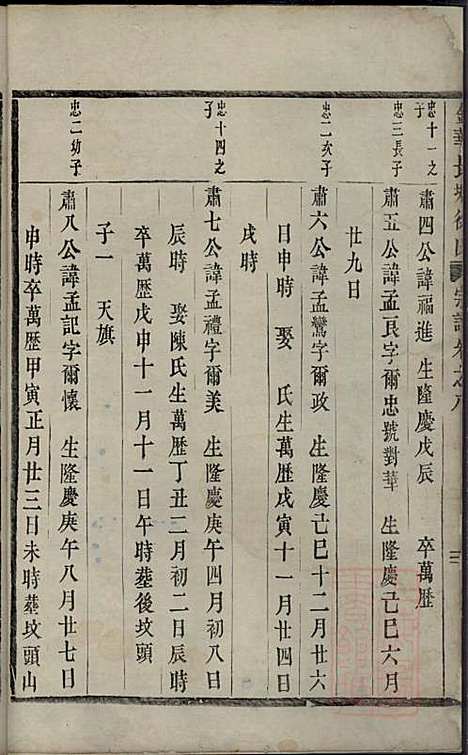 忠十一之子
肅四公諱福進 生隆慶戊辰 卒萬歷
忠三長子
肅五公諱孟良字爾忠號對華 生隆慶己巳六月
廿九日
忠二次子
肅六公諱孟鸞字爾政 生隆慶己巳十二月廿六
日申時 娶 氏生萬歷戊寅十一月廿四日
戌時
忠十四之子
肅七公諱孟禮字爾美 生隆慶庚午四月初八日
辰時 娶陳氏生萬歷丁丑二月初二日辰時
卒萬歷戊申十一月十一日午時塟後坟頭
子一 天旗
忠二幼子
肅八公諱孟記字爾懷 生隆慶庚午八月廿七日
申時卒萬歷甲寅正月廿三日未時塟坟頭山